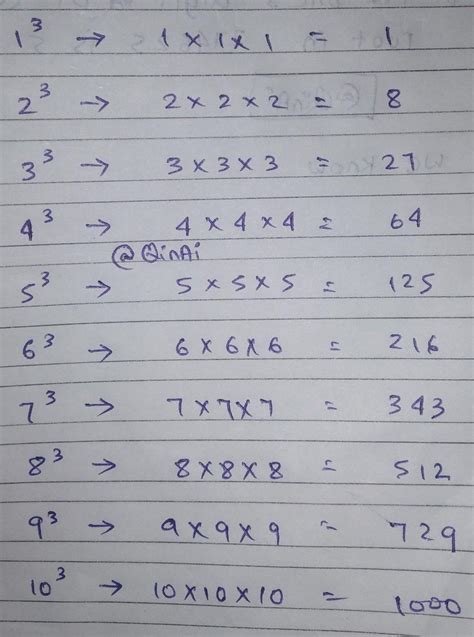 1³ → 1 × 1 × 1 = 1
2³ → 2 × 2 × 2 = 8
3³ → 3 × 3 × 3 = 27
4³ → 4 × 4 × 4 = 64
@QinAi
5³ → 5 × 5 × 5 = 125
6³ → 6 × 6 × 6 = 216
7³ → 7 × 7 × 7 = 343
8³ → 8 × 8 × 8 = 512
9³ → 9 × 9 × 9 = 729
10³ → 10 × 10 × 10 = 1000